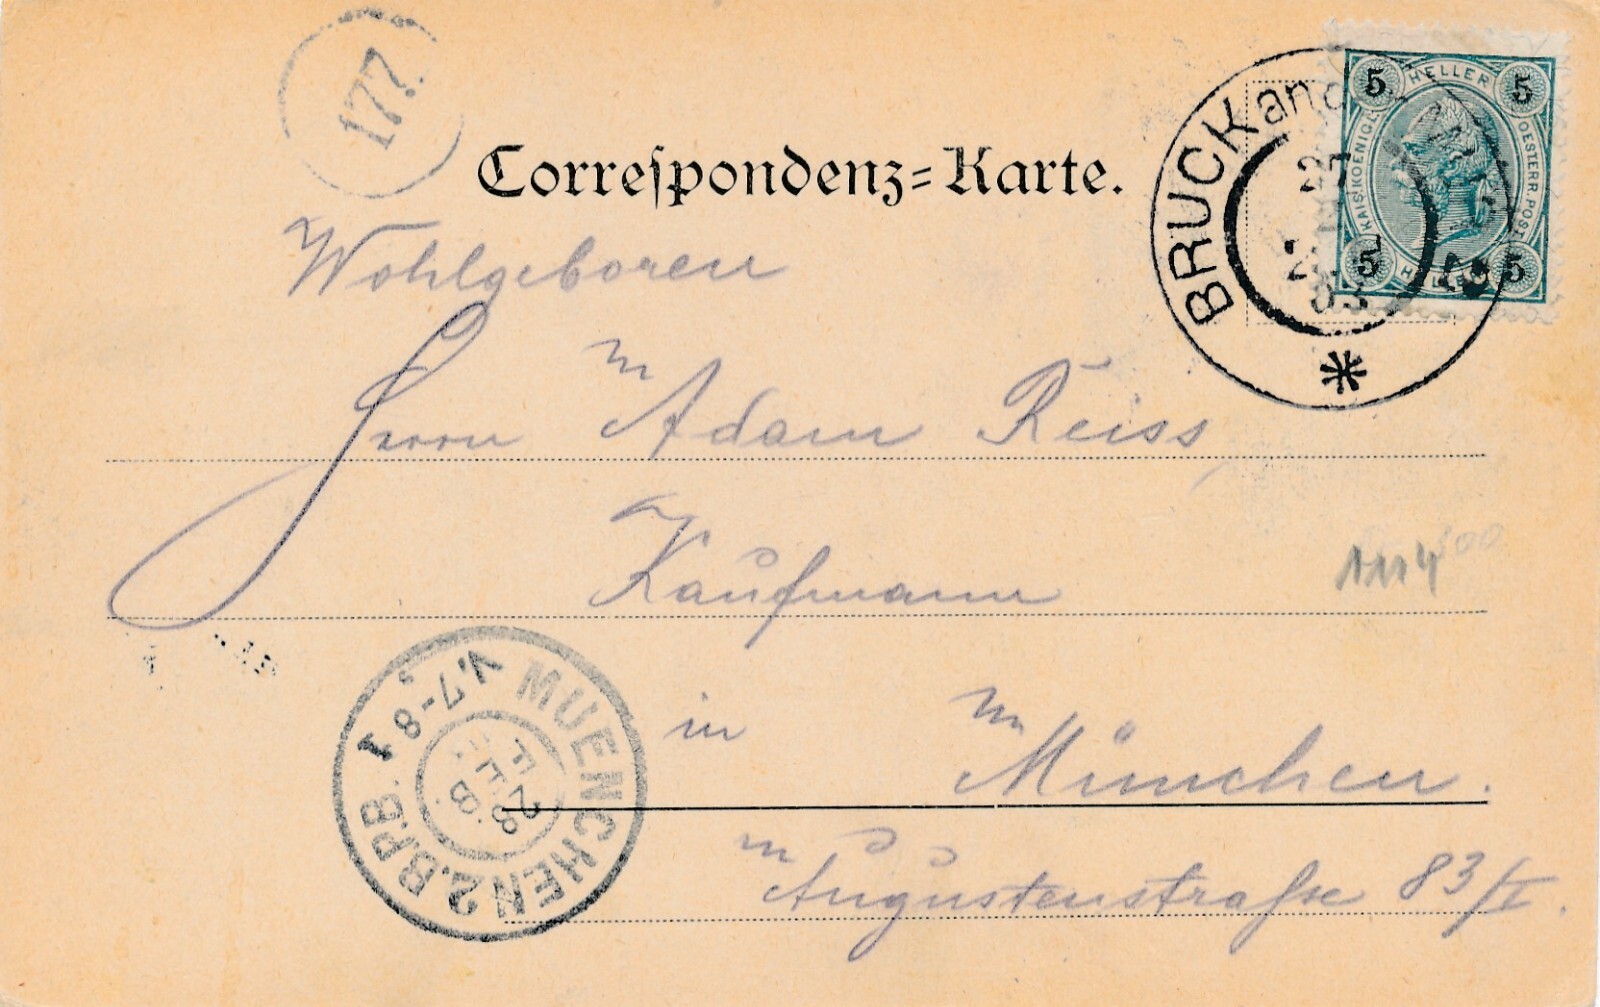 177.
Correspondenz=Karte.
5 HELLER 5
KAIS.KOENIGL. OESTERR.POST
5 5
BRUCK an d
27
2
03
Wohlgeboren
Herrn Adam Reiss,
Kaufmann
in München.
Augustenstraße 83/I.
MUENCHEN 2.B.P.B. 1
V.7-8
28
FEB.